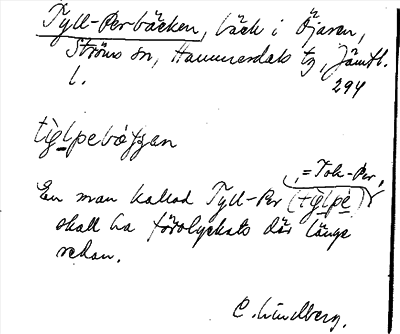 Tyll-Perbäcken, bäck i Öjaren,
Ströms sn, Hammerdals tg, Jämtl.
l. 294
tìḷpebèkʹʹen
= Tok-Per,
En man kallad Tyll-Per (tỳḷpè)
skall ha förolyckats där länge
sedan.
C. Lindberg.